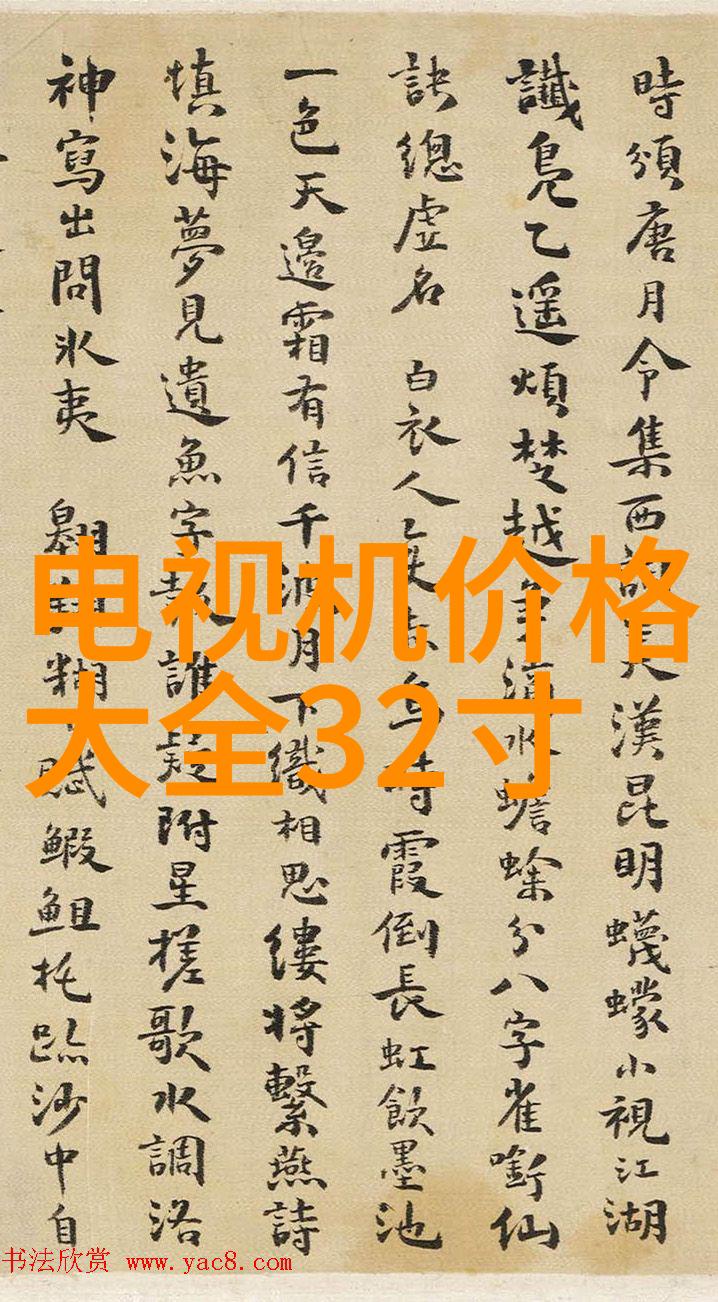 時頒唐月令集西詔美漢昆明蠛蠓小視江湖
讖鳧乙遥煩楚越爭滴水蟾蜍分八字雀銜仙
訣總虛名 白衣人下赤烏時霞倒長虹飲墨池
一色天邊霜有信千泖月下織相思縷將繫燕詩
慎海夢見遺魚字誰疑附星槎歌水調洛
神寫出問冰夷 糊賦鰕鮔托跡沙中自
电视机价格
大全32寸
书法欣赏 www.yac8.com